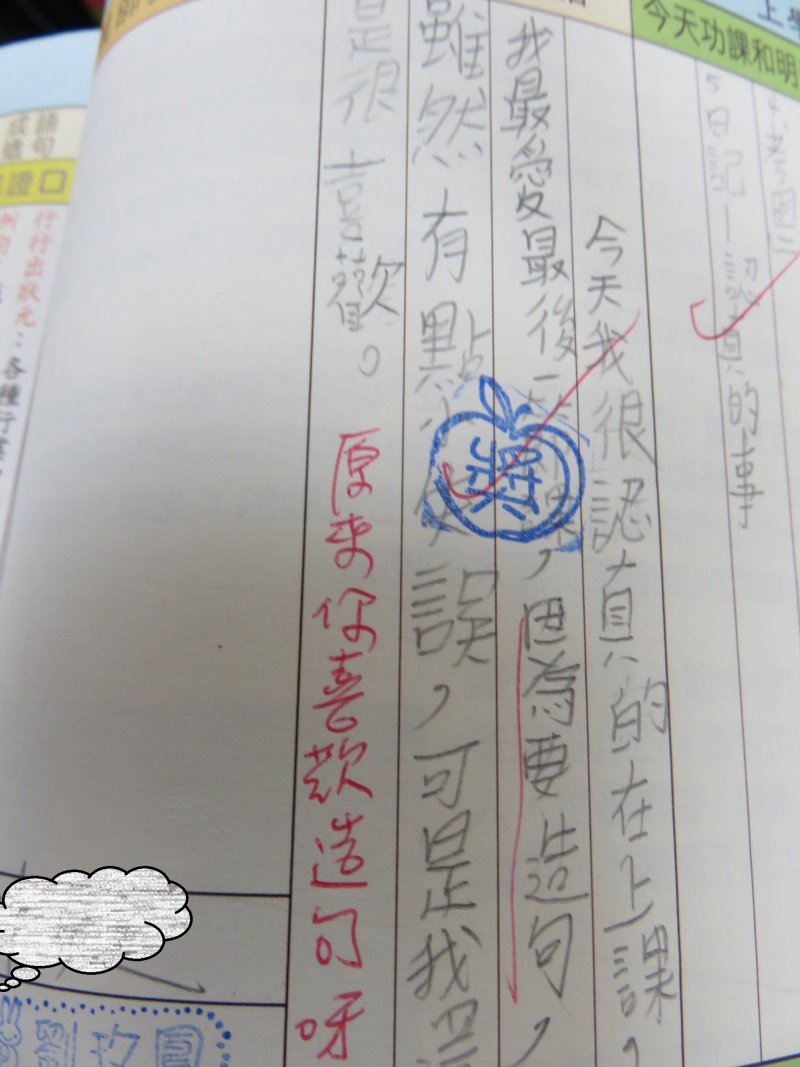 上學
今天功課和明
5日記-認真的事
今天我很認真的在上課,
我最愛最後一節課,因為要造句,
雖然有點 誤,可是我還
是很喜歡。
原來你喜歡造句呀
獎
語句
證口
行行出狀元:各種行業
例句
劉玫圓